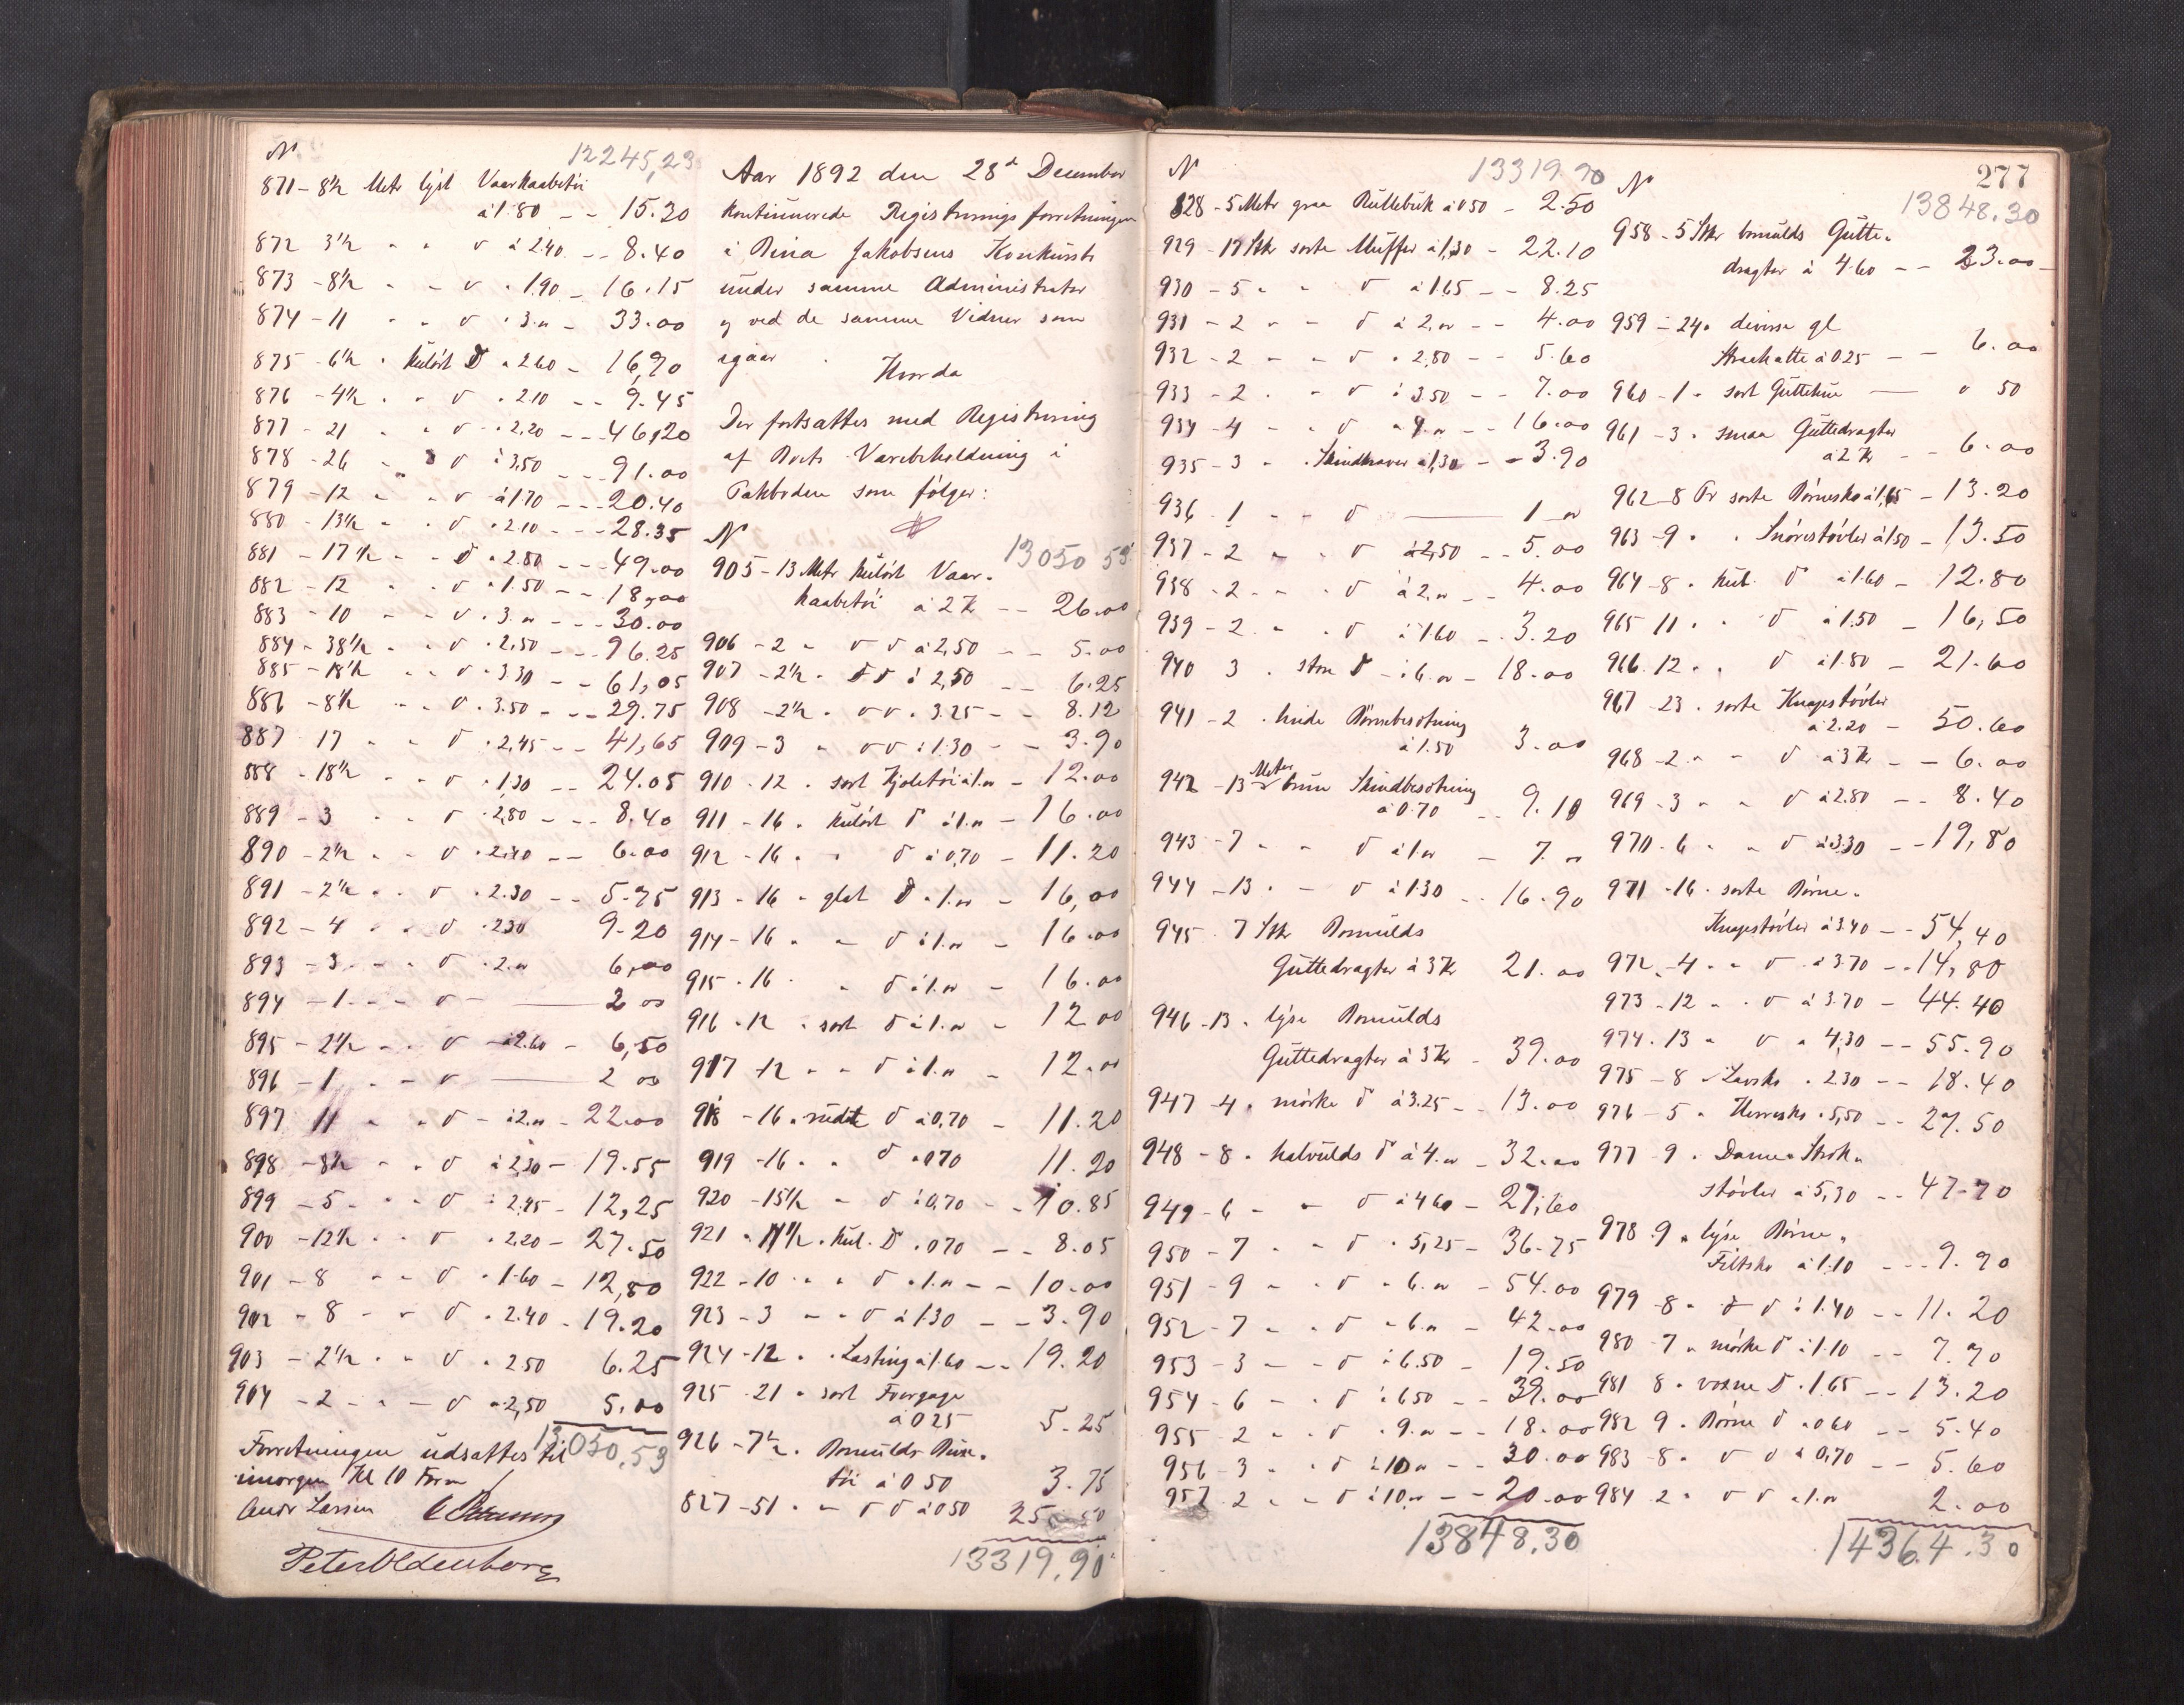 N
12245,23
871 - 8½ Metr lyst Vaarkaabetöi
à 1.80 - - 15.30
872 3½ " " d à 2.40 - - 8.40
873 - 8½ " " d " 1.90 - 16.15
874 - 11 " " d " 3." - 33.00
875 - 6½ " kulört d " 2.60 - 16,90
876 - 4½ " " d " 2.10 - - 9.45
877 - 21 " " d " 2,20 - - 46,20
878 - 26 " " d à 3,50 - - 91.00
879 - 12 " " d à 1.70 - - 20.40
880 - 13½ " " d " 2.10 - - - 28.35
881 - 17½ " " d " 2.80 - - 49.00
882 - 12 " " d " 1.50 - - 18,00
883 - 10 " " d " 3." - - - 30.00
884 - 38½ " " d " 2,50 - - 96.25
885 - 18½ " " d " 3.30 - - 61,05
886 - 8½ " " d " 3.50 - - - 29.75
887 17 " " d " 2,45 - - 41,65
888 - 18½ " " d " 1,30 - - 24.05
889 - 3 " " d " 2,80 - - - 8.40
890 - 2½ " " d " 2.40 - - 6.00
891 - 2½ " " d " 2.30 - - 5.75
892 - 4 " " d " 2.30 9.20
893 - 3 " " d " 2." 6,00
894 - 1 " " d - —— 2 00
895 - 2½ " " d - à 2.60 - 6,50
896 - 1 " " d —— 2 00
897 11 " " d - à 2." - 22.00
898 - 8½ " " d à 2,30 - 19.55
899 - 5 " " d à 2.45 - 12,25
900 - 12½ " " d " 2.20 - 27.50
901 - 8 " " d " 1.60 - 12,80
902 - 8 " " d " 2.40 - 19.20
903 - 2½ " " d " 2.50 6.25
904 - 2 " " d " 2,50 5.00
13050,53
Forretningen udsattes til
imorgen Kl 10 Form
Andr Larsen
Peter Oldenborg
Aar 1892 den 28d December
kontinuerede Registreringsforretningen
i Rina Jakobsens Konkursbo
under samme Administrator
og ved de samme Vidner som
igaar.
Hvorda
Der fortsattes med Registrering
af Boets Varebeholdning i
Pakboden som fölger:
N
13050 53
905 - 13 Metr kulört Vaar-
kaabetöi à 2 Kr - - 26.00
906 - 2 " d d à 2,50 - - 5.00
907 - 2½ " d d à 2,50 - - 6.25
908 - 2½ " d d " 3.25 - - 8.12
909 - 3 " d d à 1.30 - - 3.90
910 - 12 " sort Kjoletöi à 1." - 12.00
911 - 16 " kulört d à 1." - 16.00
912 - 16 " " d à 0,70 - 11.20
913 - 16 " glat d " 1." - 16,00
914 - 16 " " d à 1." - 16.00
915 - 16 " d à 1." - 16.00
916 - 12 " sort d à 1." - 12.00
917 12 " " d à 1." - 12.00
918 - 16 " rudet d à 0,70 - 11.20
919 - 16 " " d " 070 11.20
920 - 15½ " d à 0,70 - - 10.85
921 " 11½ " kul. d " 070 - - 8.05
922 - 10 " " d " 1." - - 10.00
923 - 3 " " d à 1.30 - - 3.90
924 - 12 " " Lasting à 1.60 - - 19.20
925 - 21 " sort Foergaze
à 0 25 5.25
926 - 7½ " Bomulds Buxe-
töi à 0 50 3.75
827 - 51 " " d d à 0 50 25.50
13319.90
N
13319.90
828 - 5 Metr graa Rullebuk à 0 50 - 2.50
929 - 17 Stkr sorte Muffer à 1,30 - 22.10
930 - 5 " " d à 1.65 - - 8.25
931 - 2 " " d à 2," - - 4.00
932 - 2 " " d " 2,80 - - 5.60
933 - 2 " " d à 3.50 - - 7.00
934 - 4 " " d " 4." - - 16.00
935 - 3 " " Skindkraver à 1,30 - - 3.90
936 - 1 " " d —— 1 "
937 - 2 " " d à 2,50 - - 5.00
938 - 2 " " d à 2," - - 4.00
939 - 2 " " d à 1.60 - . 3.20
940 3 " store d - à 6." - 18.00
941 - 2 " hvide Börnebesetning
à 1.50 3.00
942 - 13 Meter brun Skindbesetning
à 0.70 - - 9.10
943 - 7 " " d à 1." - 7. "
944 - 13 " " d à 1.30 - - 16.90
945 7 Stkr Bomulds
Guttedragter à 3 Kr 21.00
946 - 13 " lyse Bomulds
Guttedragter à 3 Kr - 39.00
947 - 4 " mörke d à 3.25 - - 13.00
948 - 8 " halvulds d à 4." - 32.00
949 - 6 " " d à 4.60 - 27,60
950 - 7 " " d " 5,25 - 36.75
951 - 9 " " d " 6." - 54.00
952 - 7 " " d " 6." - 42.00
953 - 3 " " d à 6.50 - 19.50
954 - 6 " " d à 6.50 - - 39.00
955 2 " " d " 9." - - 18.00
956 - 3 " " d à 10." - - 30.00
957 2 " " d à 10." - - 20.00
13848.30
277
N
13848.30
958 - 5 Stkr bomulds Gutte-
dragter à 4.60 - - 23.00
959 - 24 " diverse gl
Straahatte à 0.25 - - 6.00
960 - 1 " sort Guttehue —— 0 50
961 - 3 " smaa Guttedragter
à 2 Kr - - 6.00
962 - 8 Pr sorte Börnesko à 1,65 - 13.20
963 - 9 " " Snörestövler à 1.50 - 13.50
964 - 8 " kul. d à 1.60 - 12.80
965 11 " " d à 1.50 - 16,50
966 12 " " d à 1.80 - 21.60
967 - 23 " sorte Knapestövler
à 2.20 - 50.60
968 - 2 " " d à 3 Kr - - 6.00
969 - 3 " " d à 2.80 - - 8.40
970 - 6 " " d à 3.30 - - 19,80
971 - 16 " sorte Börne-
Knapestövler à 3.40 - - 54,40
972 - 4 " " d à 3.70 - - 14,80
973 - 12 " " d à 3.70 - 44.40
974 - 13 " d " 4,30 - - 55.90
975 - 8 " Lavsko " 2.30 - - 18.40
976 - 5 " Herresko " 5,50 - - 27.50
977 - 9 " Dame-Strik-
stövler à 5,30 - - 47.70
978 9 " lyse Börne-
Filtsko à 1.10 - - 9.90
979 - 8 " d d à 1.40 - - 11.20
980 - 7 " mörke d à 1.10 - - 7.70
981 8 " voxne d " 1.65 - - 13.20
982 9 " Börne d " 0 60 - - 5.40
983 - 8 " d d à 0,70 - - 5.60
984 2 " d d " 1." 2.00
14364.30